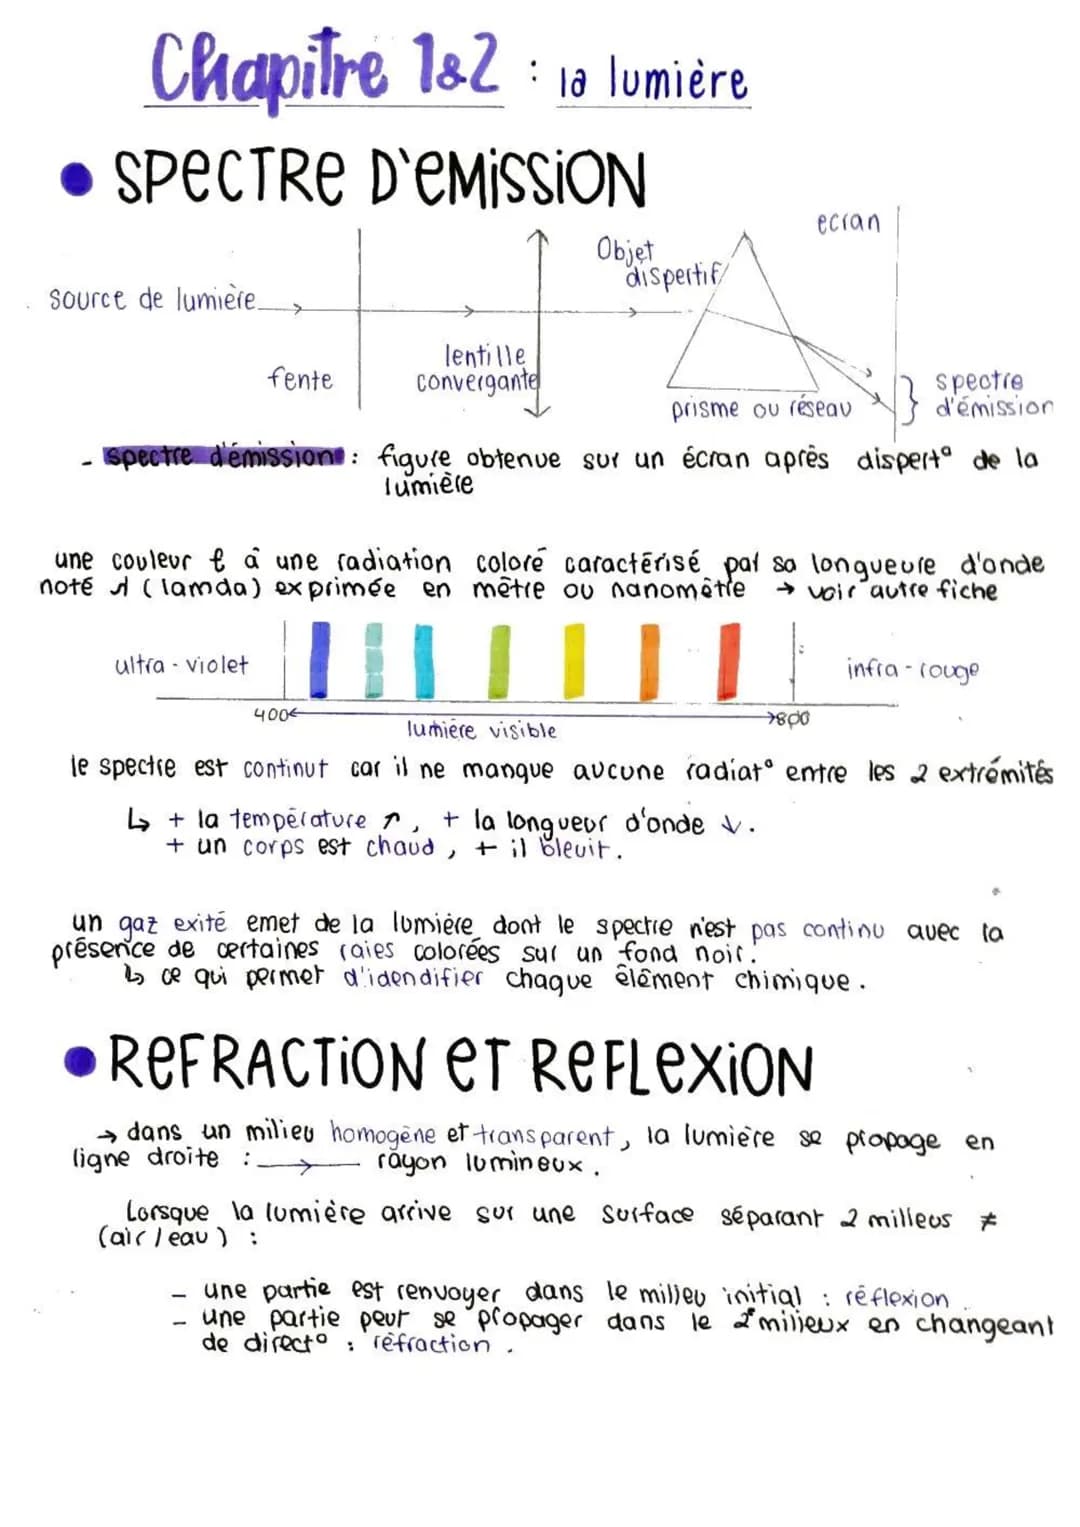 Chapitre 1&2 : la lumière
• SPECTRE D'EMISSION
ecran
Objet
dispertif
source de lumière
lentille
convergante
fente
spectre
d'émission
prisme ou réseau
- spectre d'émission : figure obtenue sur un écran après dispert° de la
lumière
une couleur à une radiation coloré caractérisé par sa longueure d'onde
noté λ (lamda) exprimée en mètre ou nanomètre → voir autre fiche
ultra-violet
infra-rouge
400
800
lumière visible
le spectre est continut car il ne manque aucune radiat° entre les 2 extrémités
↳ + la température ↗, + la longueur d'onde ↓.
+ un corps est chaud, + il bleuit.
un gaz exité emet de la lumière dont le spectre n'est pas continu avec la
présence de certaines raies colorées sur un fond noir.
↳ ce qui permet d'idendifier chaque élément chimique.
• REFRACTION ET REFLEXION
→ dans un milieu homogène et transparent, la lumière se propage en
ligne droite : → rayon lumineux.
Lorsque la lumière arrive sur une surface séparant 2 milieus ≠
(air/eau) :
- une partie est renvoyer dans le milieu initial : réflexion.
- une partie peut se propager dans le 2e milieux en changeant
de direct° : réfraction.